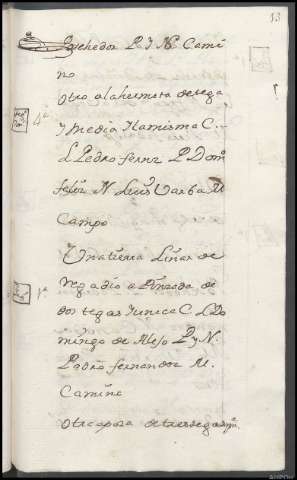 13
echedor P. Y N. Cami
no
Otro alahermeta detega
y media Ylamisma C.
L. Pedro fernz P. Dom.
feliz N. Luis Varba M.
Campo
4ª
Una tierra Linar de
Regadio a Pinzada de
dos tegas Junica C. L. Do
mingo de Alejo P. y N.
Pedro fernandez M.
Camino
1ª
Otra apoza de tres tegas